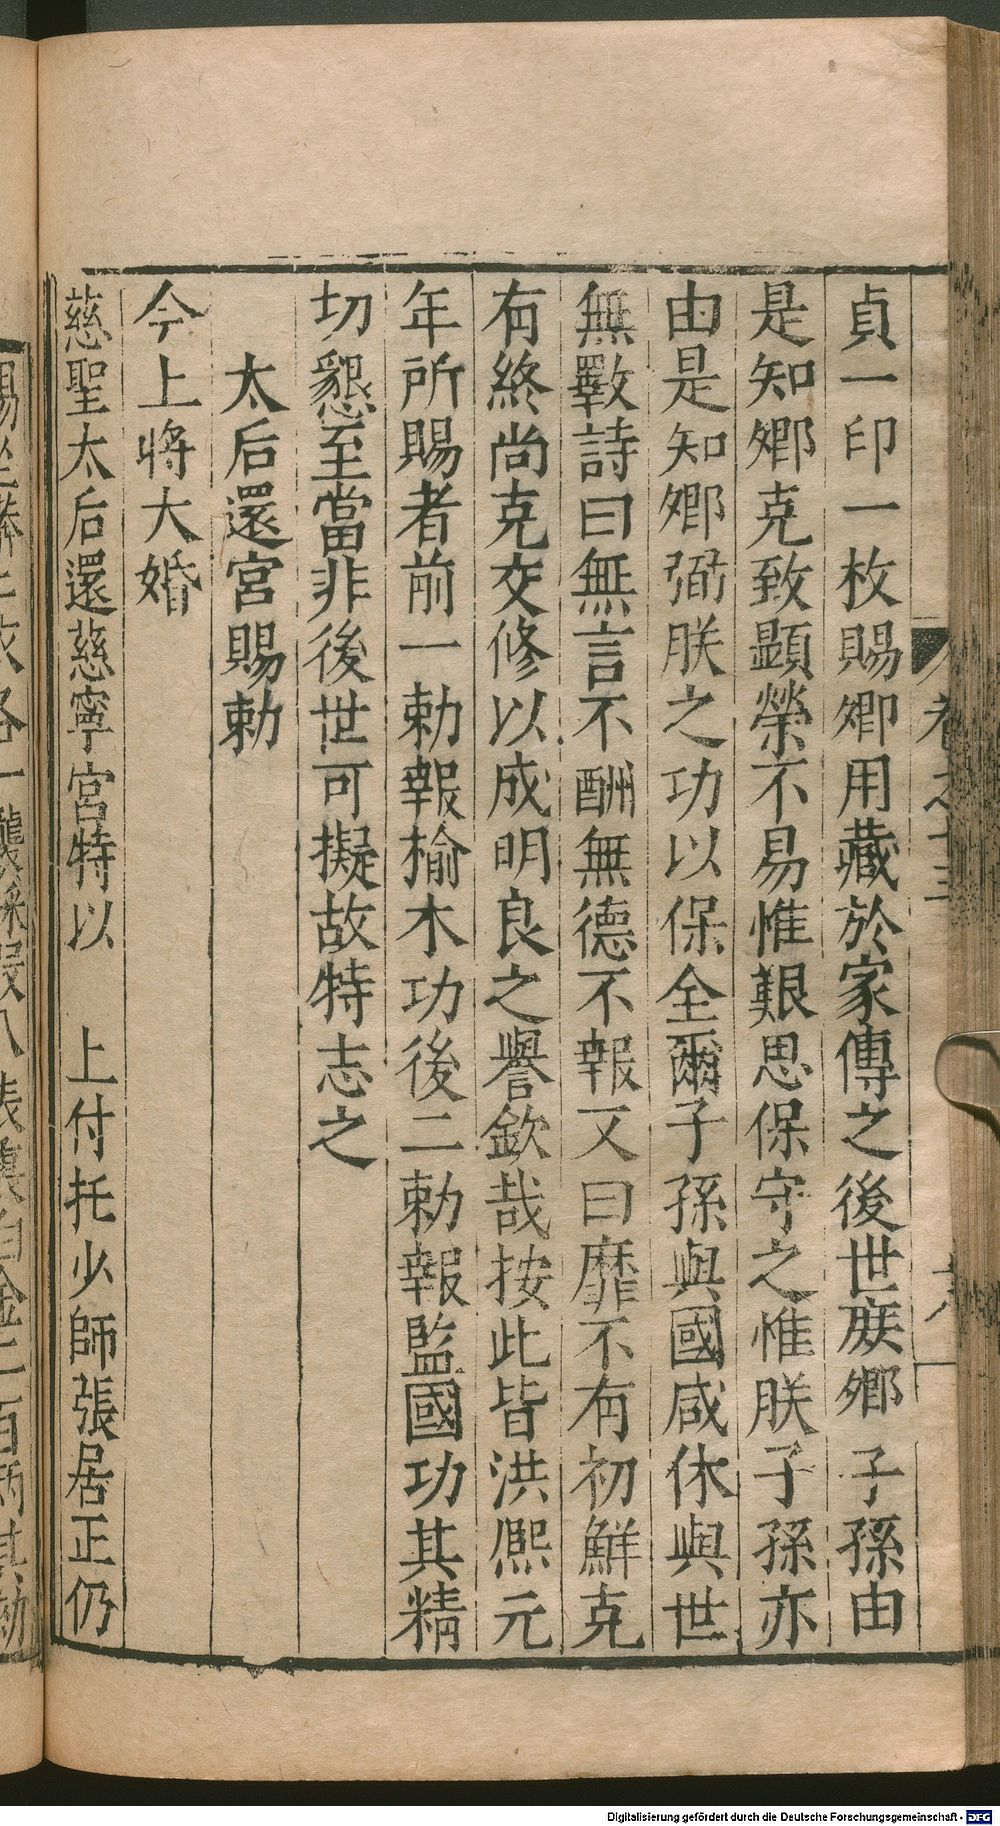 卷之十三
十八
貞一印一枚賜卿用藏於家傳之後世庻卿子孫由
是知卿克致顯榮不易惟艱思保守之惟朕子孫亦
由是知卿弼朕之功以保全爾子孫與國咸休與世
無斁詩曰無言不酬無德不報又曰靡不有初鮮克
有終尚克交修以成明良之譽欽哉按此皆洪熈元
年所賜者前一勅報揄木功後二勅報監國功其精
切懇至當非後世可擬故特志之
太后還宮賜勅
今上將大婚
慈聖太后還慈寧宮特以　上付托少師張居正仍
Digitalisierung gefördert durch die Deutsche Forschungsgemeinschaft - DFG